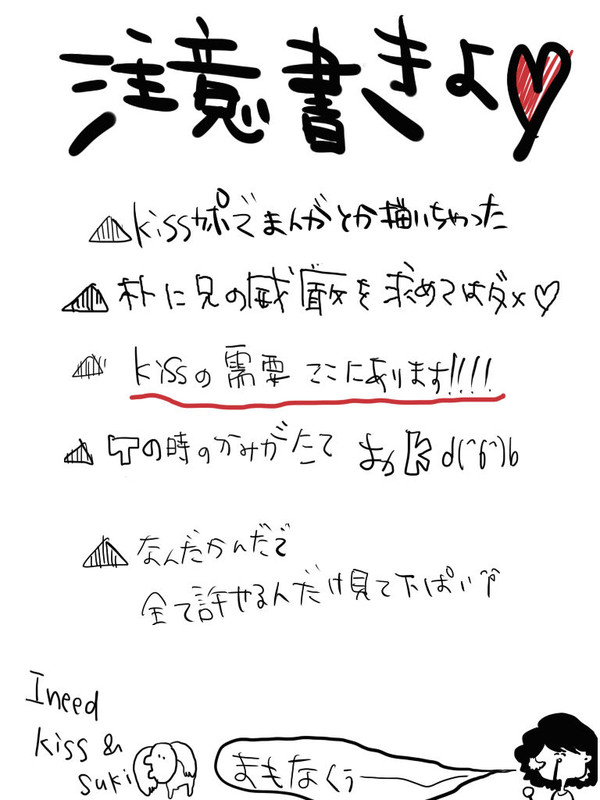 注意書きよ♡
kissサポでまんがとか描いちゃった
朴に兄の威厳を求めてはダメ♡
kissの需要ここにあります!!!!
Tの時のかみがたて まか K d(^6^)b
なんだかんだで
全て許せる人だけ見て下ぱい
I need
kiss &
suki
まもなくぅ